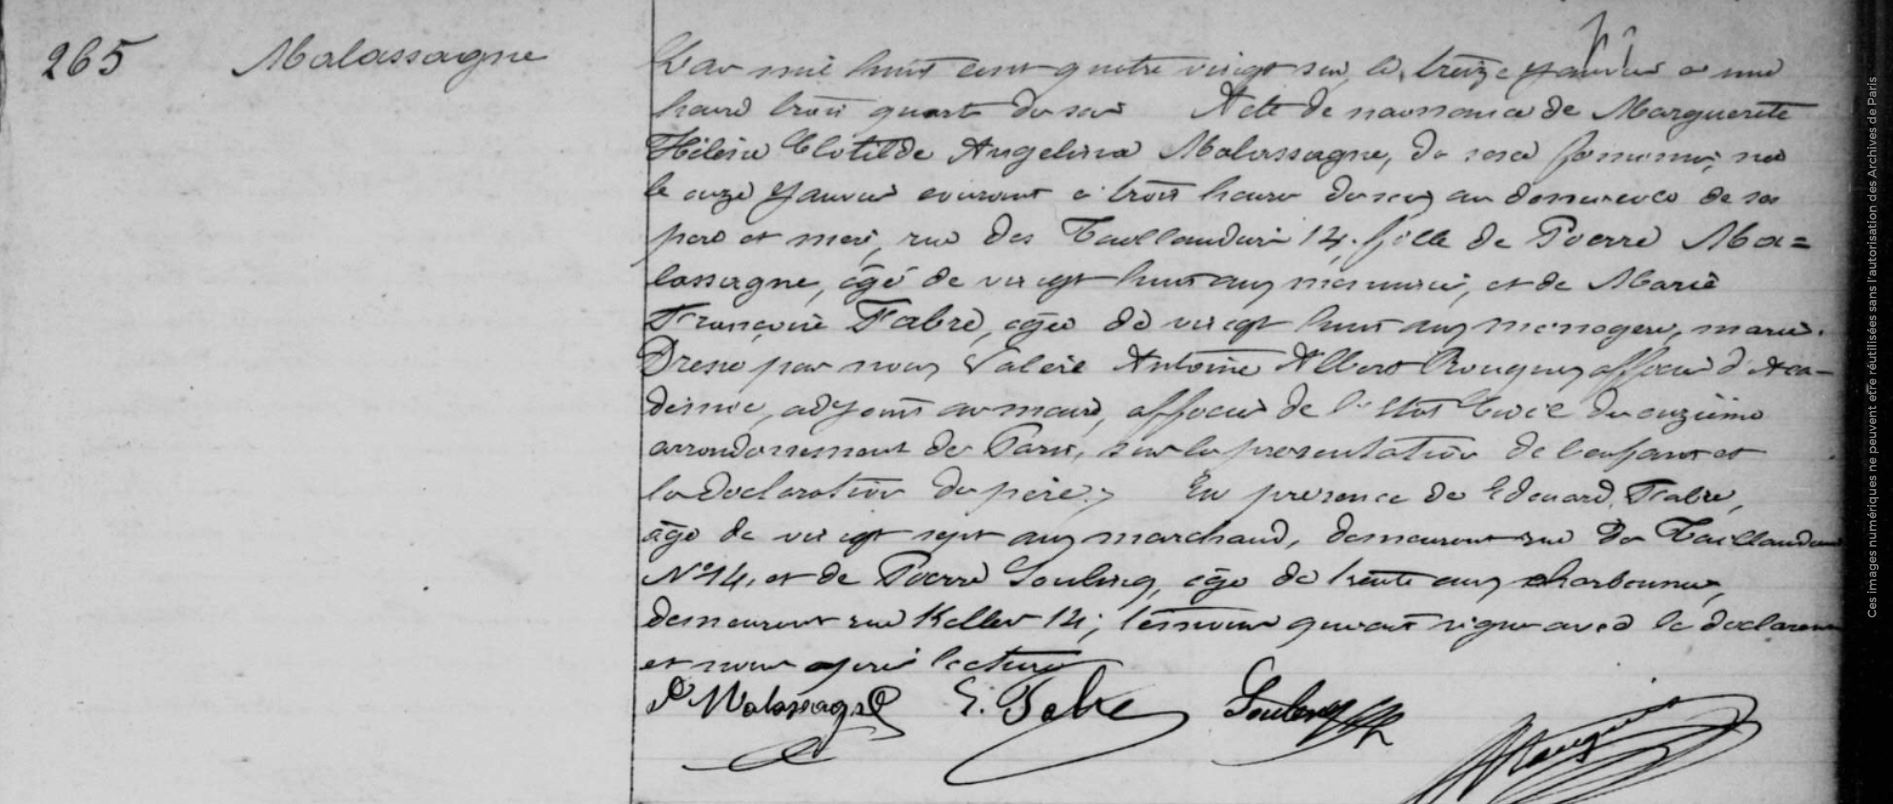 265 Malassagne
L'an mil huit cent quatre vingt six, le treize Janvier à une
heure trois quart du soir Acte de naissance de Marguerite
Hélène Clotilde Angelina Malassagne, du sexe féminin, née
le onze Janvier courant à trois heures du soir au domicile de ses
père et mère, rue des Taillandiers 14, fille de Pierre Ma=
lassagne, âgé de vingt huit ans menuisier, et de Marie
Françoise Fabre, âgée de vingt huit ans, ménagère, mariés.
Dressé par nous Valère Antoine Albert officier d'Aca-
démie, adjoint au maire, officier de l'Etat Civil du onzième
arrondissement de Paris, sur la présentation de l'enfant et
la déclaration du père; En présence de Edouard Fabre,
âgé de vingt sept ans marchand, demeurant rue des Taillandiers
N°14, et de Pierre âgé de trente ans charbonnier,
demeurant rue Keller 14; témoins qui ont signé avec le déclarant
et nous après lecture
P Malassagne E. Fabre
Ces images numériques ne peuvent être réutilisées sans l'autorisation des Archives de Paris